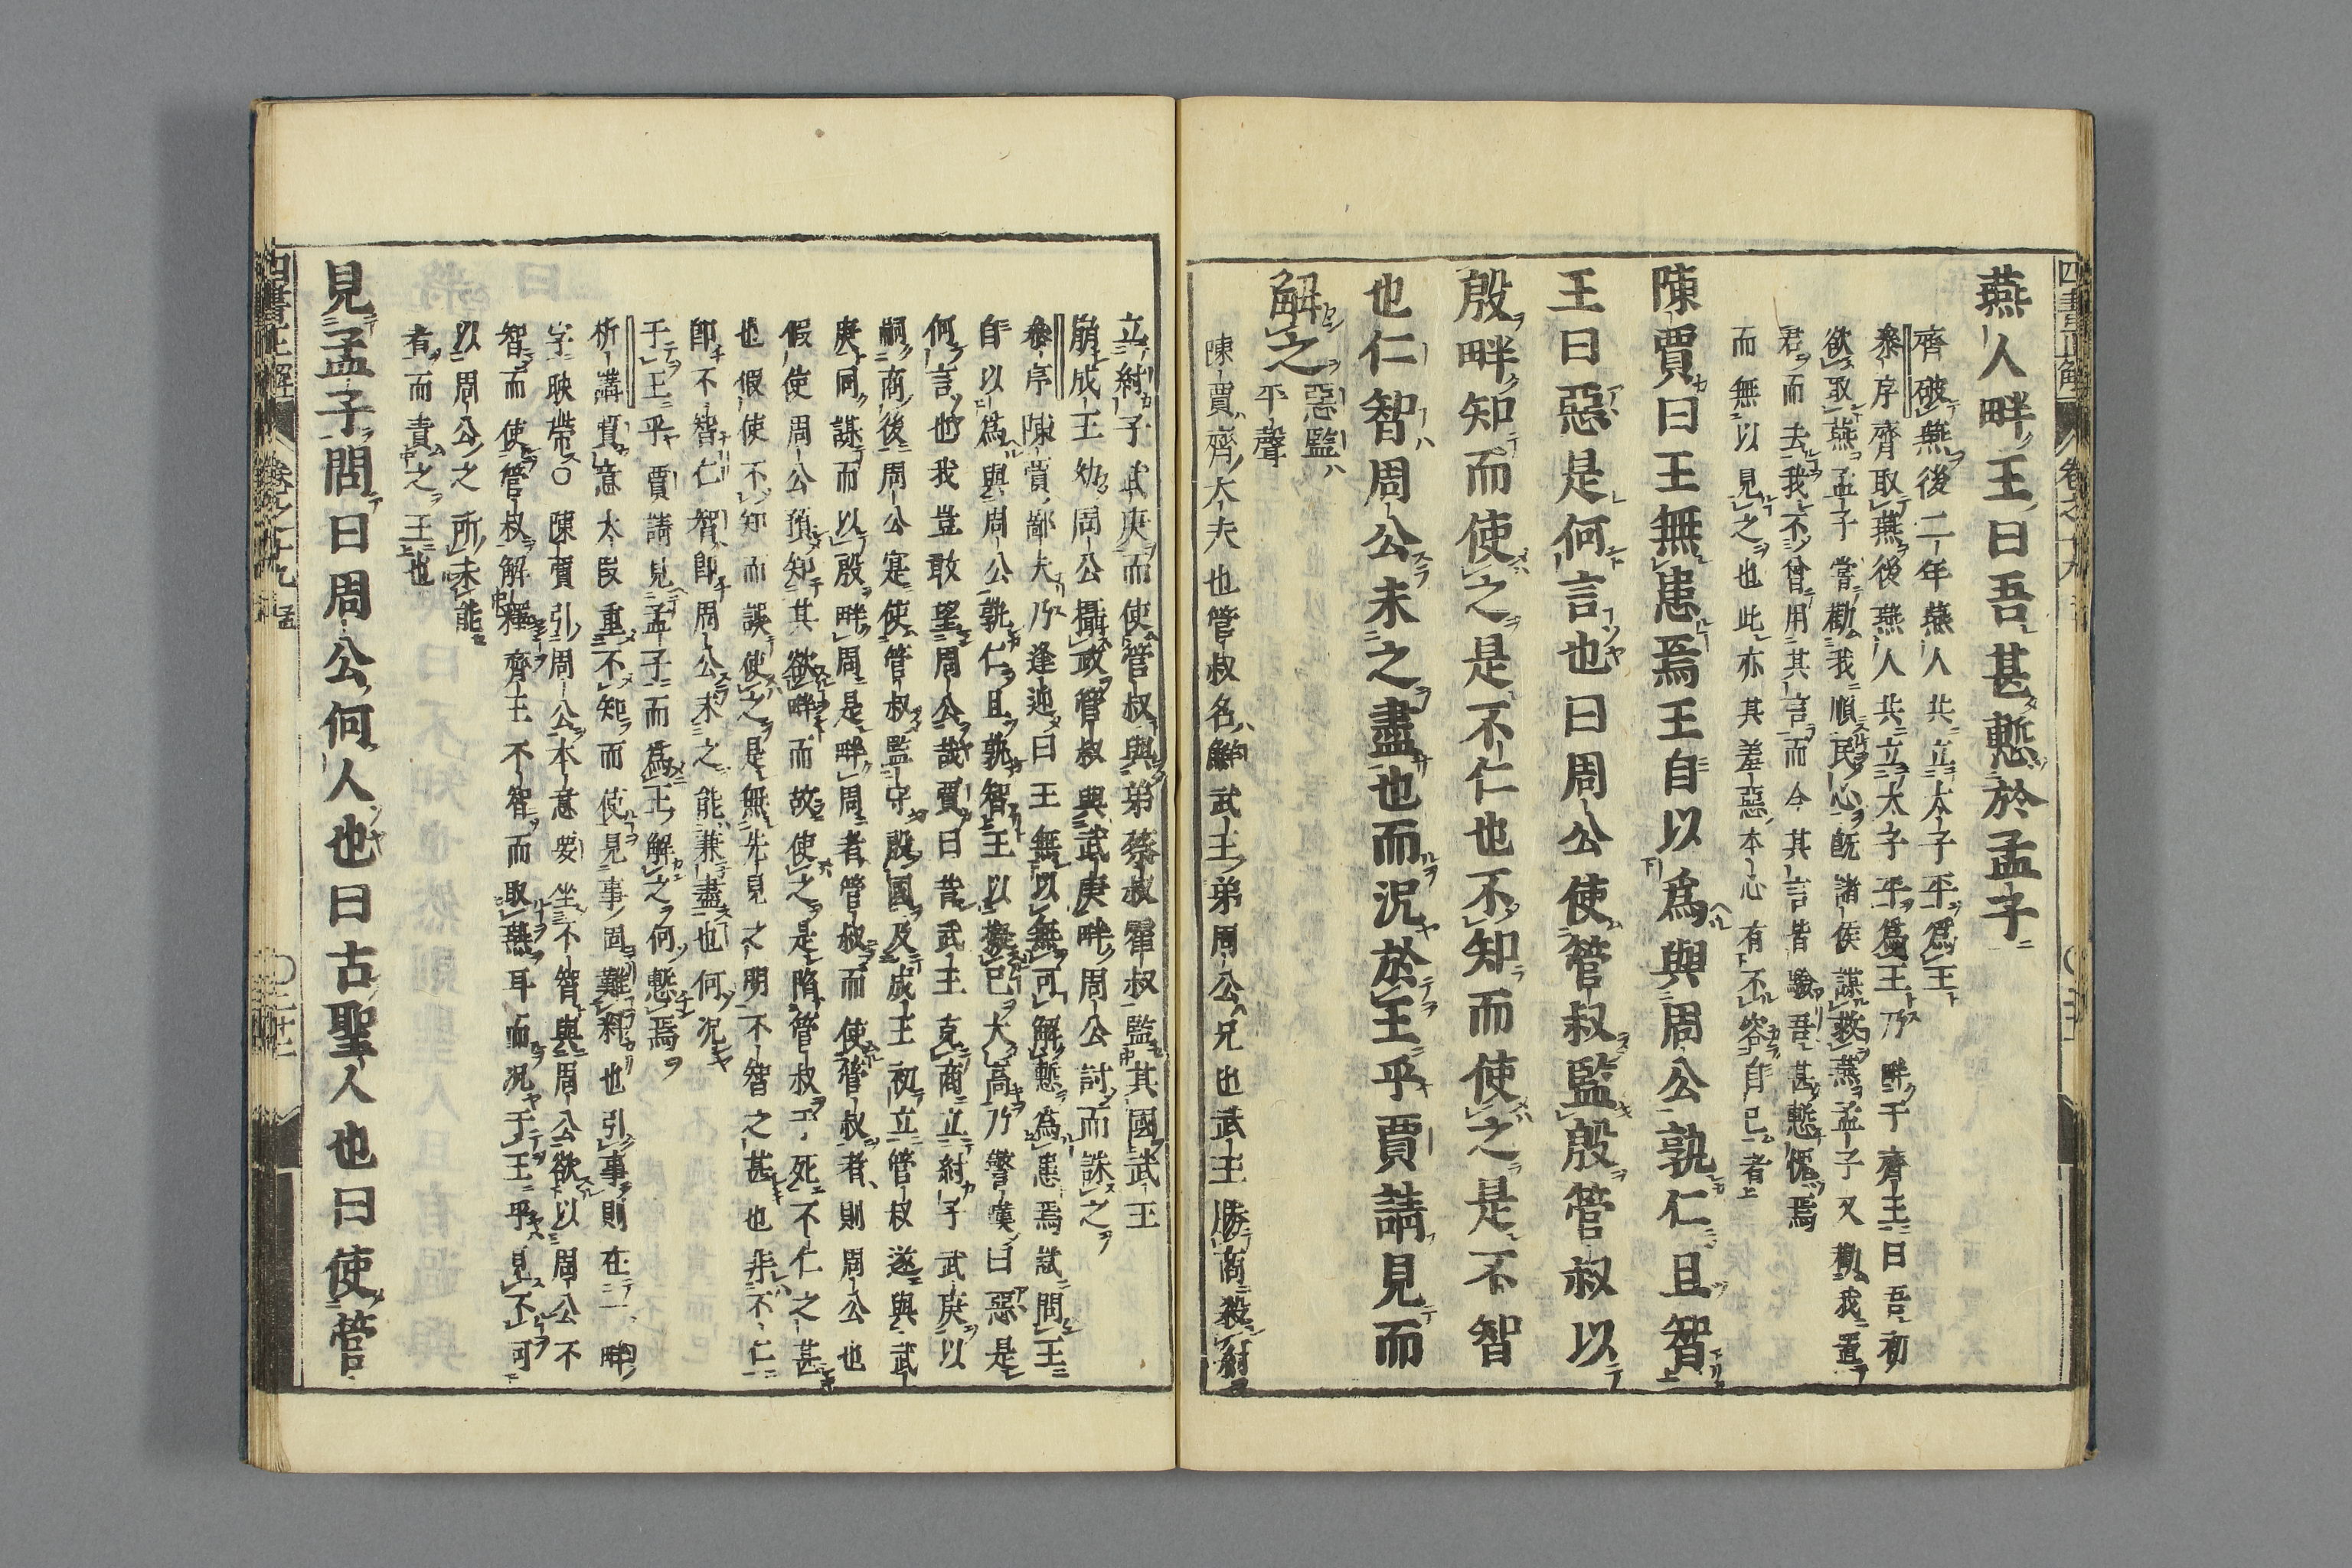 燕人畔王曰吾甚慙於孟子
齊破燕後二年燕人共立太子平爲王
叅序齊取燕後燕人共立太子平爲王乃畔于齊王曰吾初
欲取燕孟子嘗勸我順民心旣諸侯謀救燕孟子又勸我置
君而去我不曾用其言而今其言皆驗吾甚慙愧焉
而無以見之也此亦其羞惡本心有不容自已者
陳賈曰王無患焉王自以爲與周公孰仁且智
王曰惡是何言也曰周公使管叔監殷管叔以
殷畔知而使之是不仁也不知而使之是不智
也仁智周公未之盡也而況於王乎賈請見而
解之
惡監
平聲
陳賈齊大夫也管叔名鮮武王弟周公兄也武王勝商殺紂
立紂子武庚而使管叔與弟蔡叔霍叔監其國武王
崩成王幼周公攝政管叔與武庚畔周公討而誅之
叅序陳賈鄙夫乃逢迎曰王無以無可解慙為患焉試問王
自以爲與周公孰仁且孰智王以擬己大高乃驚嘆曰惡是
何言也我豈敢望周公哉賈曰昔武王克商立紂子武庚以
嗣商後周公寔使管叔監守殷國及成王初立管叔遂與武
庚同謀而以殷畔周是畔周者管叔而使管叔者則周公也
假使周公預知其欲畔而故使之是陷管叔于死不仁之甚
也假使不知而誤使之是無先見之明不智之甚也非不仁
卽不智仁智卽周公未之能兼盡也何況
于王乎賈請見孟子而爲王解之何慙焉
析講賈意太叚重不知而使見事固難料也引事則在一畔
字映帶〇陳賈引周公本意要坐不智與周公欲以周公不
智而使管叔解釋齊王不智而取燕耳而況于王乎見不可
以周公之所未能
者而責之王也
見孟子問曰周公何人也曰古聖人也曰使管